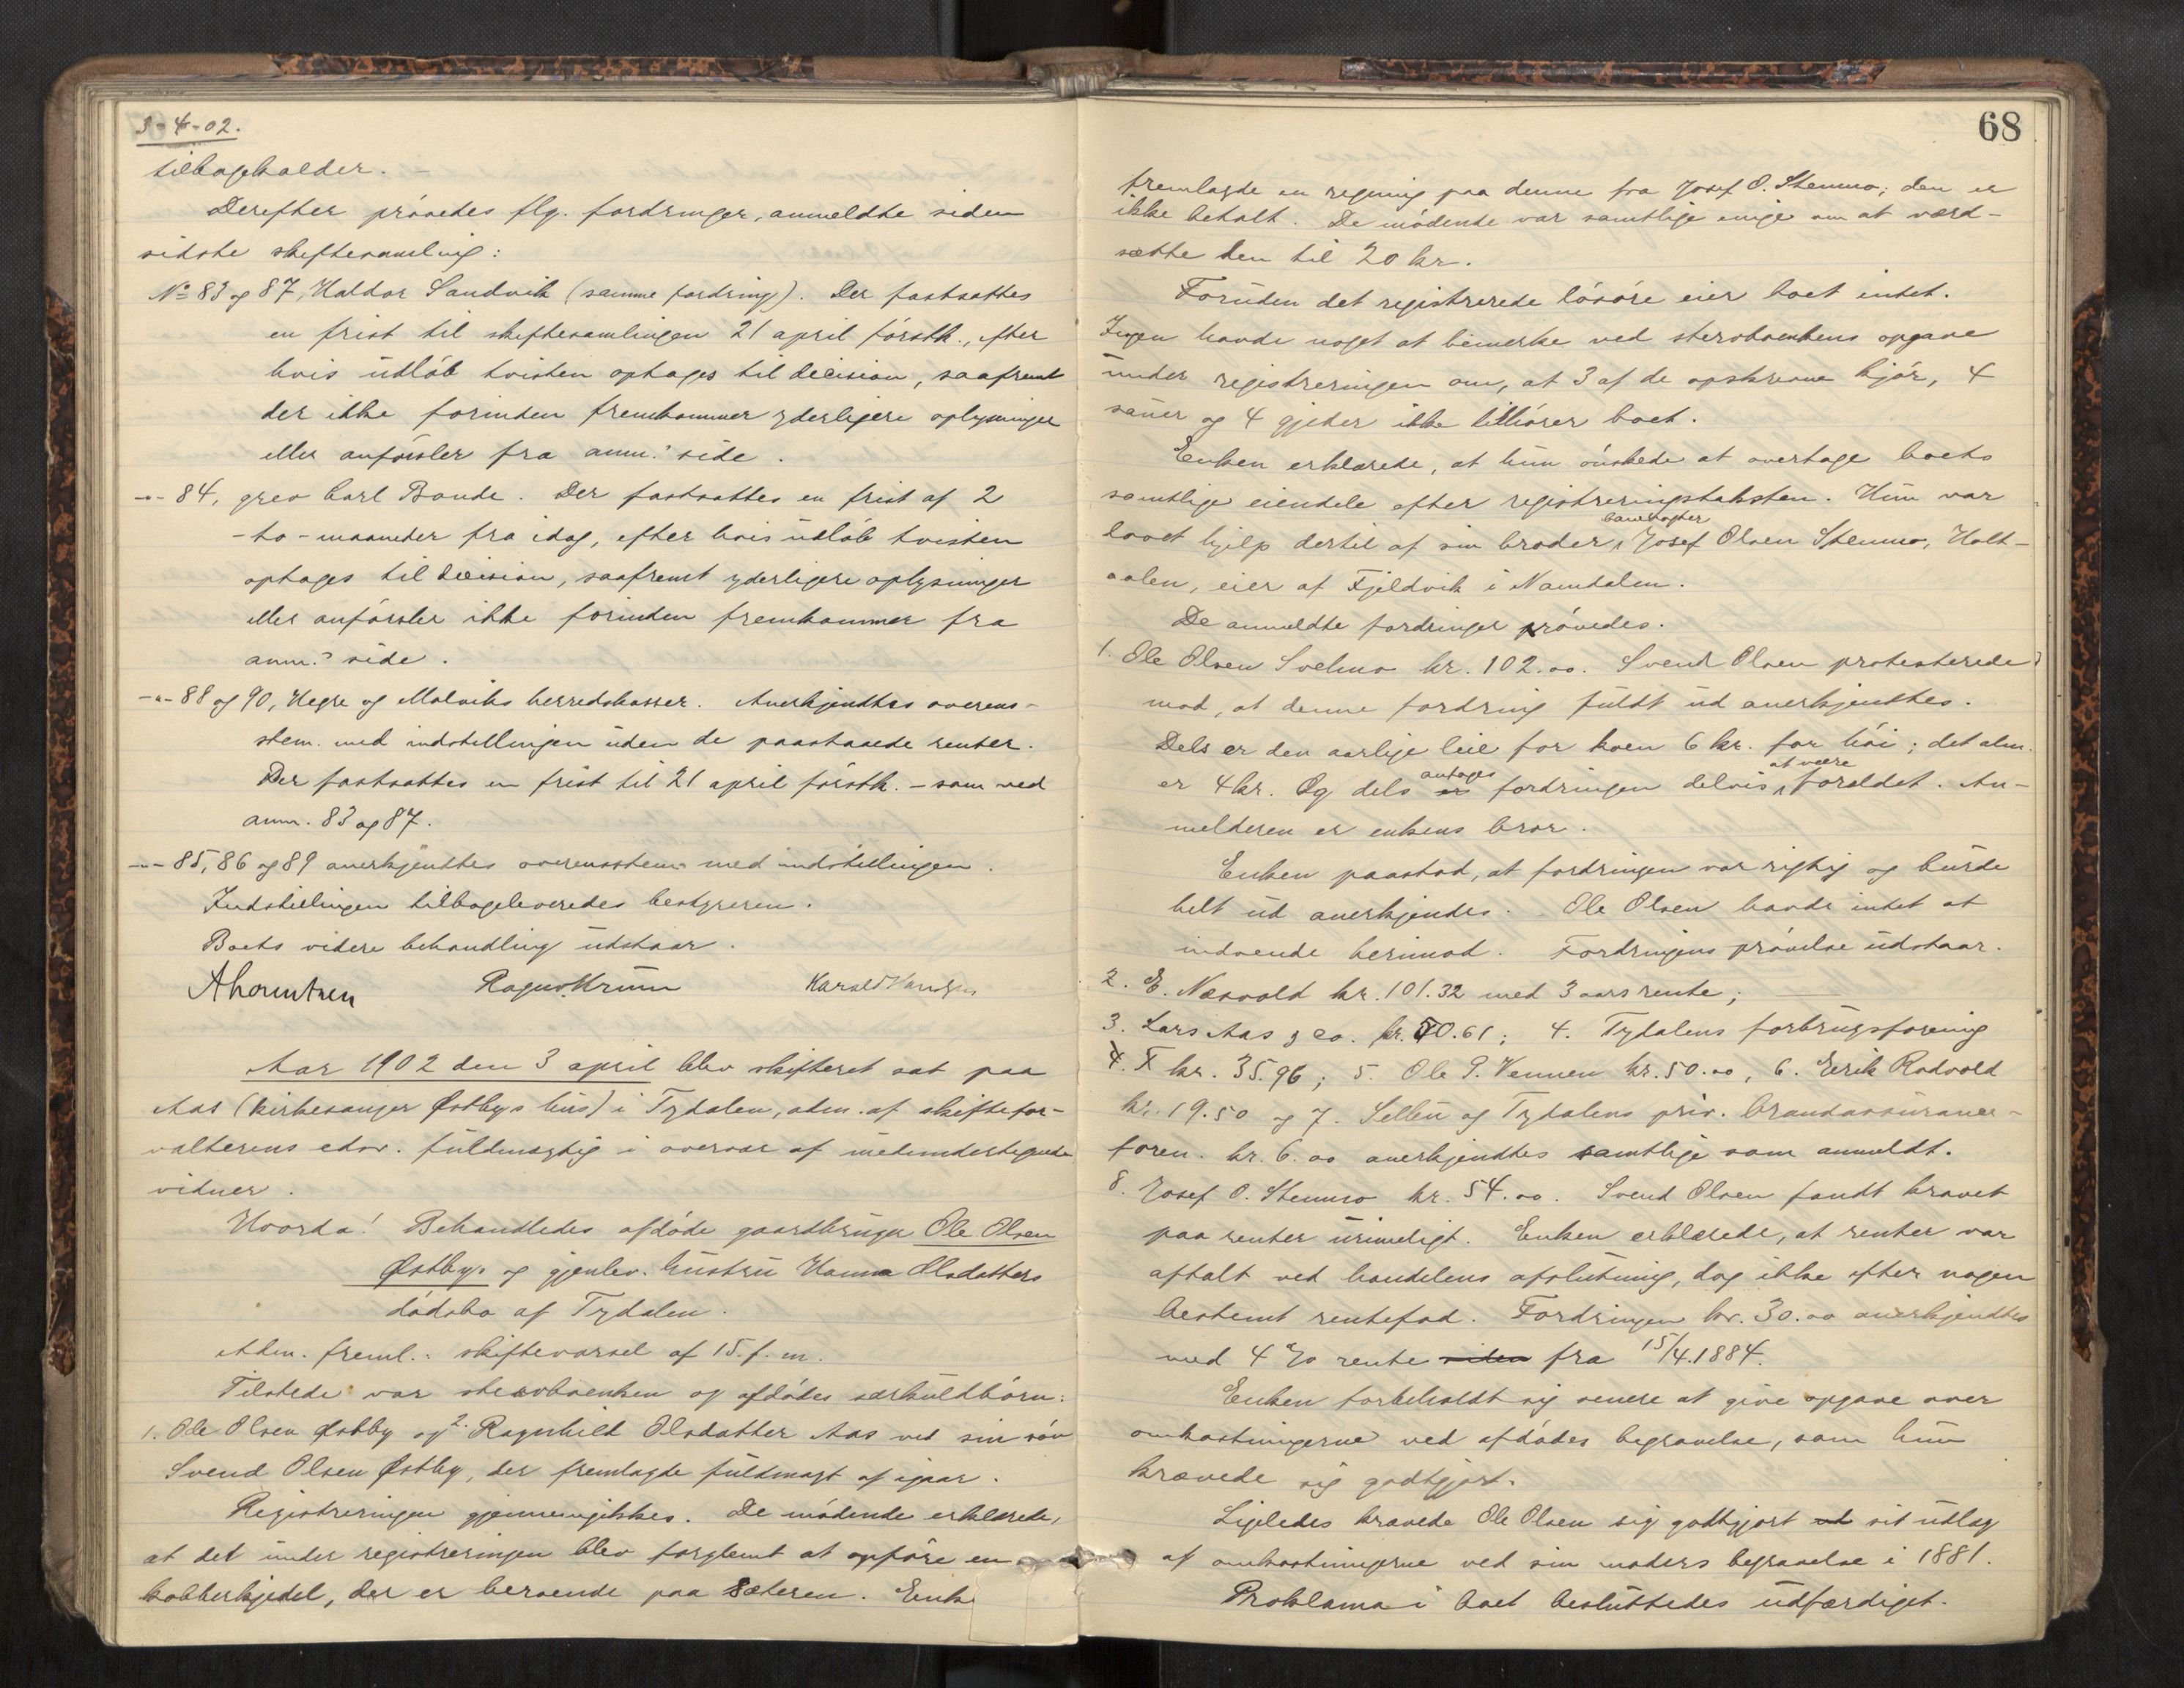 3-4-02.
tilbageholder. -
Derefter prövedes flg. fordringer, anmeldte siden
sidste skiftesamling:
No 83 og 87, Haldor Sandvik (samme fordring). Der fastsattes
en frist til skiftesamlingen 21 april förstk., efter
hvis udlöb tvisten optages til decision, saafremt
der ikke forinden fremkommer yderligere oplysninger
eller anförsler fra anm.s side.
-"- 84, grev Carl Bonde. Der fastsattes en frist af 2
- to - maaneder fra idag, efter hvis udlöb tvisten
optages til decision, saafremt yderligere oplysninger
eller anförsler ikke forinden fremkommer fra
anm.s side.
-"- 88 og 90, Hegre og Malviks herredskasser. Anerkjendtes overens-
stem. med indstillingen uden de paastaaede renter.
Der fastsattes en frist til 21 april förstk. - som ved
anm. 83 og 87.
-"- 85, 86 og 89 anerkjendtes overensstem. med indstillingen.
Indstillingen tilbageleveredes bestyreren.
Boets videre behandling udstaar.
Ragnv. Krüm
Aar 1902 den 3 april blev skifteret sat paa
Aas (kirkesanger Østbys hus) i Tydalen, adm. af skiftefor-
valterens edsv. fuldmægtig i overvær af medundertegnede
vidner.
Hvorda! Behandledes afdöde gaardbruger Ole Olsen
Østbys og gjenlev. hustru Hanna Olsdatters
dödsbo af Tydalen.
Adm. freml.: skiftevarsel af 15. f. m.
Tilstede var stervboenken og afdödes særkuldbörn:
1. Ole Olsen Østby og 2. Ragnhild Olsdatter Aas ved sin sön
Svend Olsen Østby, der fremlagde fuldmagt af igaar.
Registreringen gjennemgikkes. De mödende erklærede,
at det under registreringen blev forglemt at opföre en
kobberkjedel, der er beroende paa Sæteren. Enk
68
fremlagde en regning paa denne fra Josef O. Stenmo; den er
ikke betalt. De mödende var samtlige enige om at værd-
sætte den til 20 kr.
Foruden det registrerede lösöre eier boet intet.
Ingen havde noget at bemerke ved stervboenkens opgave
under registreringen om, at 3 af de opskrevne kjör, 4
sauer og 4 gjeder ikke tilhörer boet.
Enken erklærede, at hun önskede at overtage boets
samtlige eiendele efter registreringstaksten. Hun var
lovet hjelp dertil af sin broder, Josef Olsen Stenmo, Holt-
aalen, eier af Fjeldvik i Namdalen.
De anmeldte fordringer prövedes.
1. Ole Olsen Svelmo kr. 102.00. Svend Olsen protesterede
mod, at denne fordring fuldt ud anerkjendtes.
Dels er den aarlige leie for koen 6 kr. for höi; det alm.
er 4 kr. Og dels antages fordringen delvis at være foreldet. An-
melderen er enkens bror.
Enken paastod, at fordringen var rigtig og burde
helt ud anerkjendes. Ole Olsen havde intet at
indvende herimod. Fordringens prövelse udstaar.
2. E. Næsvold kr. 101.32 med 3 aars rente;
3. Lars Aas & co. kr. 50.61; 4. Tydalens forbrugsforening
kr. 35.96; 5. Ole P. Kennen kr. 50.00, 6. Erik Rodvold
kr. 19.50 og 7. Selbu og Tydalens priv. brandassurance-
foren. kr. 6.00 anerkjendtes samtlige som anmeldt.
8. Josef O. Stenmo kr. 54.00. Svend Olsen fandt kravet
paa renter urimeligt. Enken erklærede, at renter var
aftalt ved handelens afslutning, dog ikke efter nogen
bestemt rentefod. Fordringen kr. 30.00 anerkjendtes
med 4 % rente siden fra 15/4.1884.
Enken forbeholdt sig senere at give opgave over
omkostningerne ved afdödes begravelse, som hun
krævede sig godtgjort.
Ligeledes krævede Ole Olsen sig godtgjort sit udlæg
af omkostningerne ved sin moders begravelse i 1881.
Proklama i boet besluttedes udfærdiget.